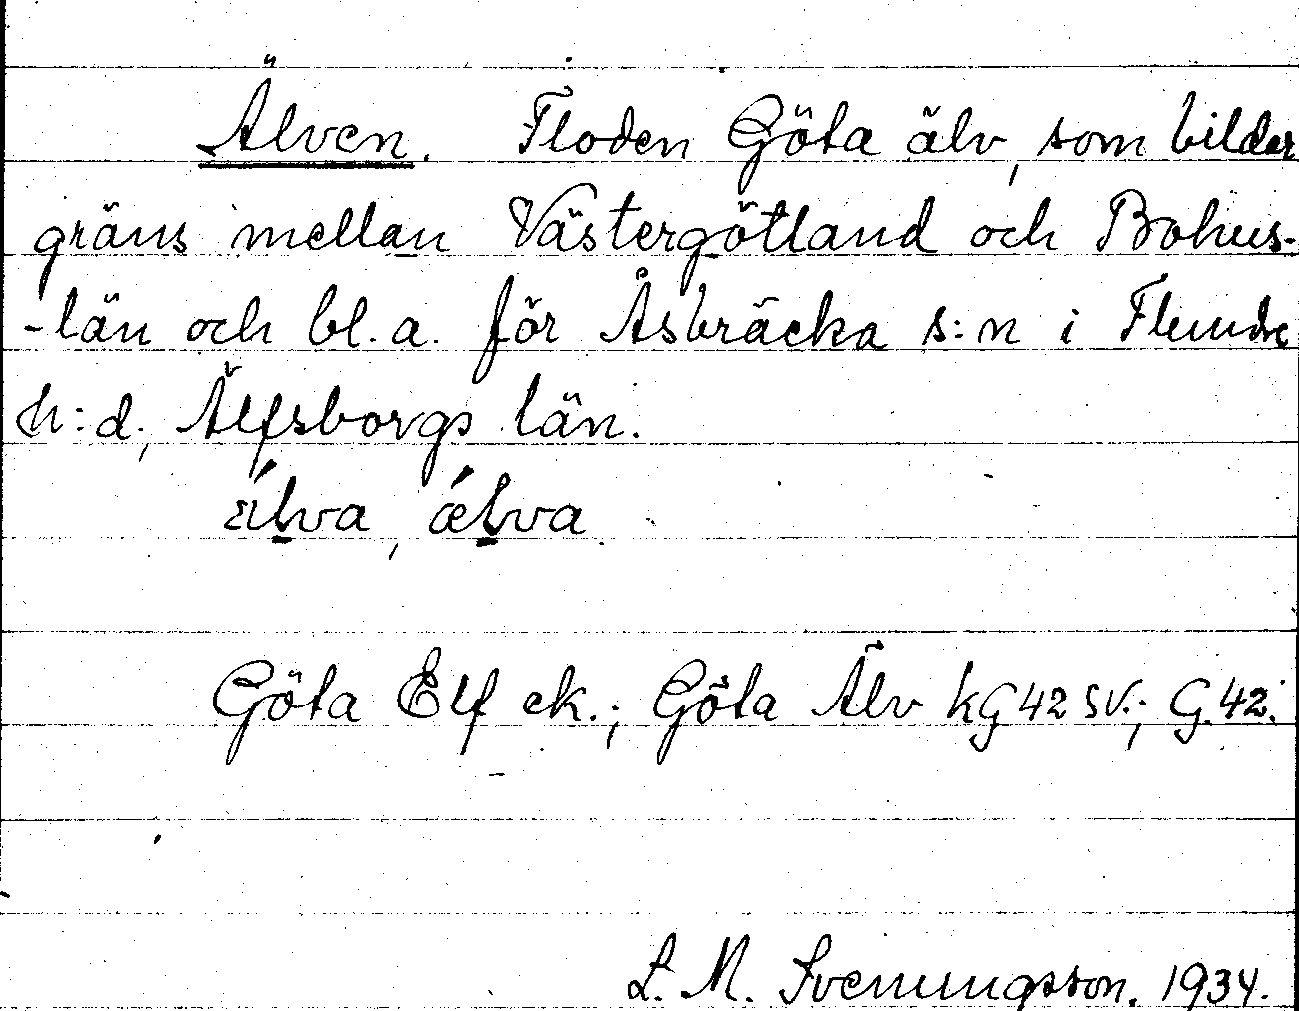 Älven. Floden Göta älv, som bildar
gräns mellan Västergötland och Bohus-
-län och bl.a. för Åsbräcka s:n i Flundre
h:d, Älfsborgs län.
ä́lva, ǽlva.
Göta Elf ek.; Göta Älv kG 42 SV.; G. 42.
L. M. Svenungsson. 1934.